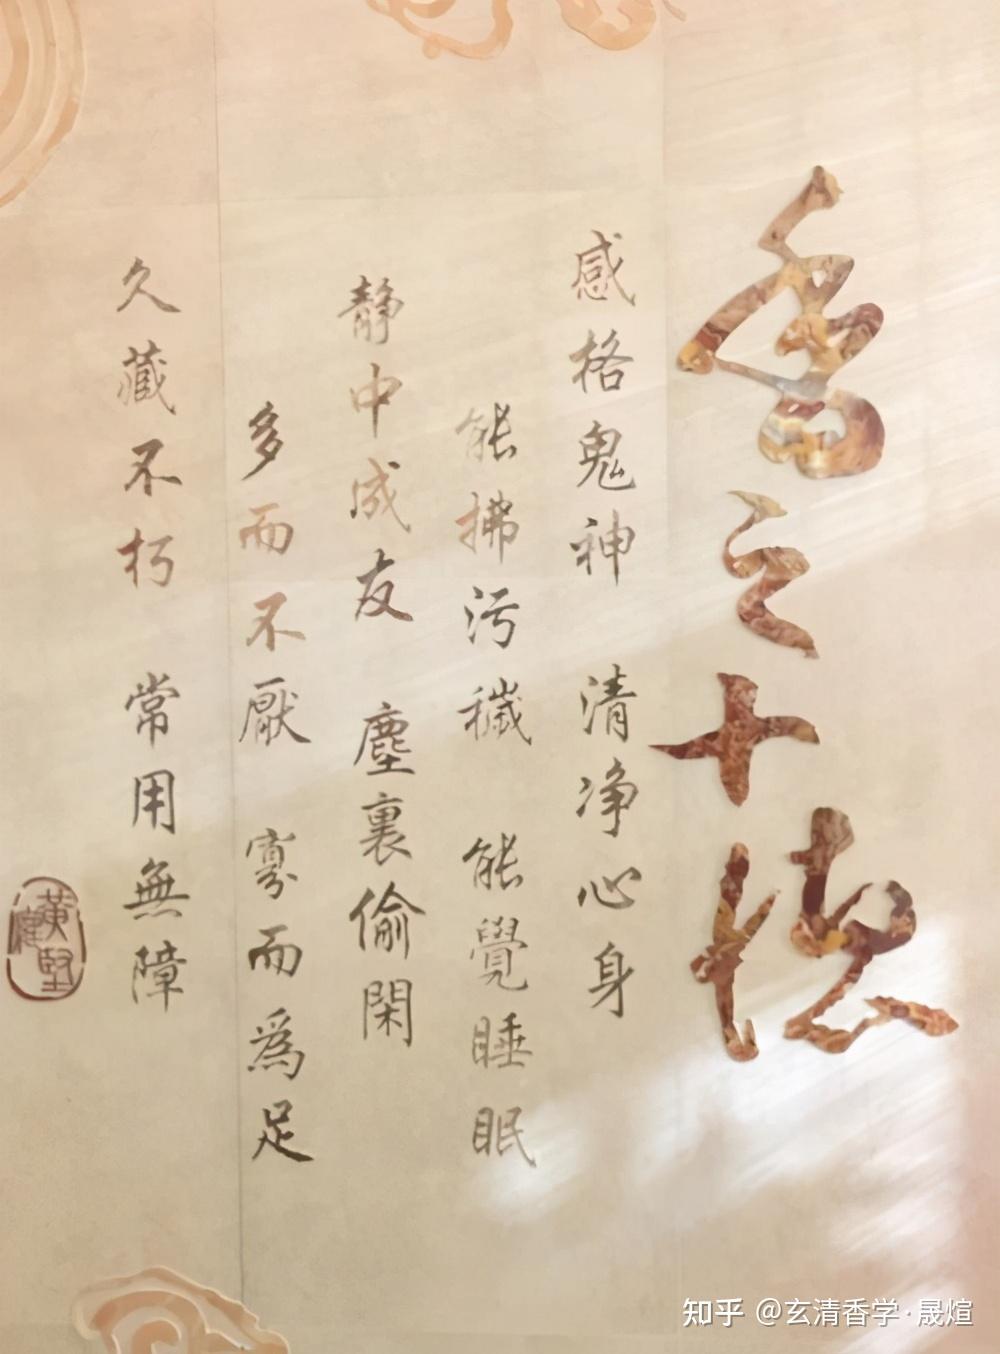 香之十德
感格鬼神 清净心身
能拂污穢 能覺睡眠
静中成友 塵裏偷閑
多而不厭 寡而為足
久藏不朽 常用無障
黃庭堅
知乎 @玄清香学·晟煊